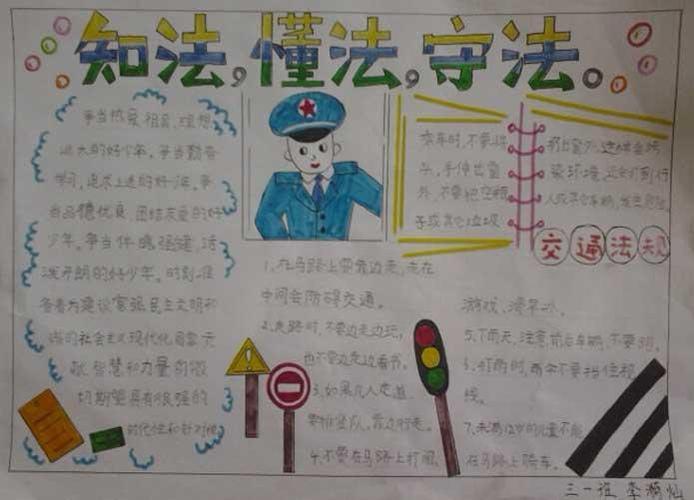 知法,懂法,守法。
争当热爱祖国、理想
远大的好少年。争当勤奋
学习、追求上进的好少年。争
当品德优良、团结友爱的好
少年。争当体魄强健、活
泼开朗的好少年。时刻准
备着为建设富强民主文明和
谐的社会主义现代化国家
献智慧和力量的
切期望具有很强的
时代性和针对性
乘车时,不要将
手伸出窗
外,不要把
子或其它垃圾
扔出窗外,这样会污
染环境,
人或其它车辆,发生危险。
交通法规
1、在马路上要靠边走,走在
中间会防碍交通。
2、走路时,不要边走边玩,
也不要边走边看书。
3、如果几人走道,
要排坚队,靠边行走。
4、不要在马路上打闹、
游戏、滑旱冰。
5、下雨天,注意前后车辆,不要
6、打雨时,雨伞不要挡住视
线。
7、未满12岁的儿童不能
在马路上骑车。
三一班 李